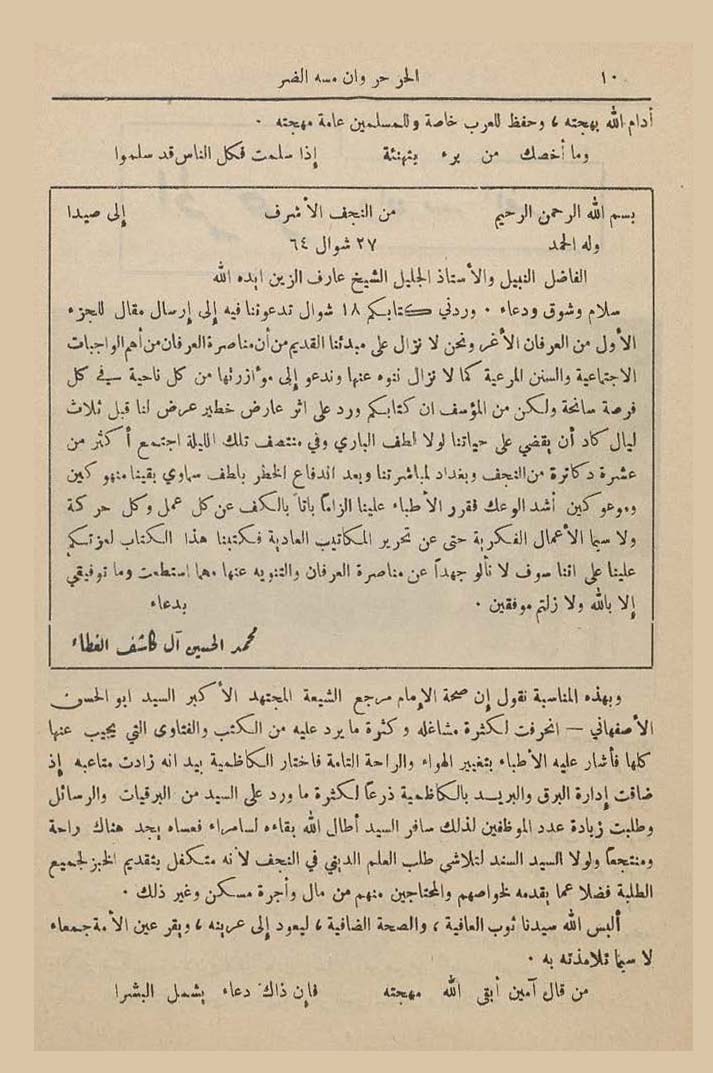 ١٠ الحر حر وان مسه الضر
أدام الله بهجته ، وحفظ للعرب خاصة وللمسلمين عامة مهجته .
وما أخصك من برء بتهنئة إذا سلمت فكل الناس قد سلموا
بسم الله الرحمن الرحيم من النجف الأشرف إلى صيدا
وله الحمد ٢٧ شوال ٦٤
الفاضل النبيل والأستاذ الجليل الشيخ عارف الزين ايده الله
سلام وشوق ودعاء . وردني كتابكم ١٨ شوال تدعوننا فيه إلى إرسال مقال للجزء
الأول من العرفان الأغر ونحن لا نزال على مبدئنا القديم من أن مناصرة العرفان من أهم الواجبات
الاجتماعية والسنن المرعية كما لا نزال ننوه عنها وندعو إلى مؤازرتها من كل ناحية سيفي كل
فرصة سانحة ولكن من المؤسف ان كتابكم ورد على اثر عارض خطير عرض لنا قبل ثلاث
ليال كاد أن يقضي على حياتنا لولا لطف الباري وفي منتصف تلك الليلة اجتمع أكثر من
عشرة دكاترة من النجف وبغداد لمباشرتنا وبعد اندفاع الخطر بلطف سماوي بقينا منهوكين
وموعوكين أشد الوعك فقرر الأطباء علينا الزاماً باتاً بالكف عن كل عمل وكل حركة
ولا سيما الأعمال الفكرية حتى عن تحرير المكاتيب العادية فكتبنا هذا الكتاب لعزتكم
علينا على اننا سوف لا نألو جهداً عن مناصرة العرفان والتنويه عنها مهما استطعت وما توفيقي
إلا بالله ولا زلتم موفقين . بدعاء
محمد الحسين آل كاشف الغطاء
وبهذه المناسبة نقول إن صحة الإمام مرجع الشيعة المجتهد الأكبر السيد ابو الحسن
الأصفهاني – انحرفت لكثرة مشاغله وكثرة ما يرد عليه من الكتب والفتاوى التي يجيب عنها
كلها فأشار عليه الأطباء بتغيير الهواء والراحة التامة فاختار الكاظمية بيد انه زادت متاعبه إذ
ضاقت إدارة البرق والبريد بالكاظمية ذرعاً لكثرة ما ورد على السيد من البرقيات والرسائل
وطلبت زيادة عدد الموظفين لذلك سافر السيد أطال الله بقاءه لسامراء فعساه يجد هناك راحة
ومنتجعاً ولولا السيد السند لتلاشى طلب العلم الديني في النجف لأنه متكفل بتقديم الخبز لجميع
الطلبة فضلا عما يقدمه لخواصهم والمحتاجين منهم من مال وأجرة مسكن وغير ذلك .
ألبس الله سيدنا ثوب العافية ، والصحة الضافية ، ليعود إلى عرينه ، ويقر عين الأمة جمعاء
لا سيما تلامذته به .
من قال آمين أبقى الله مهجته فإن ذاك دعاء يشمل البشرا